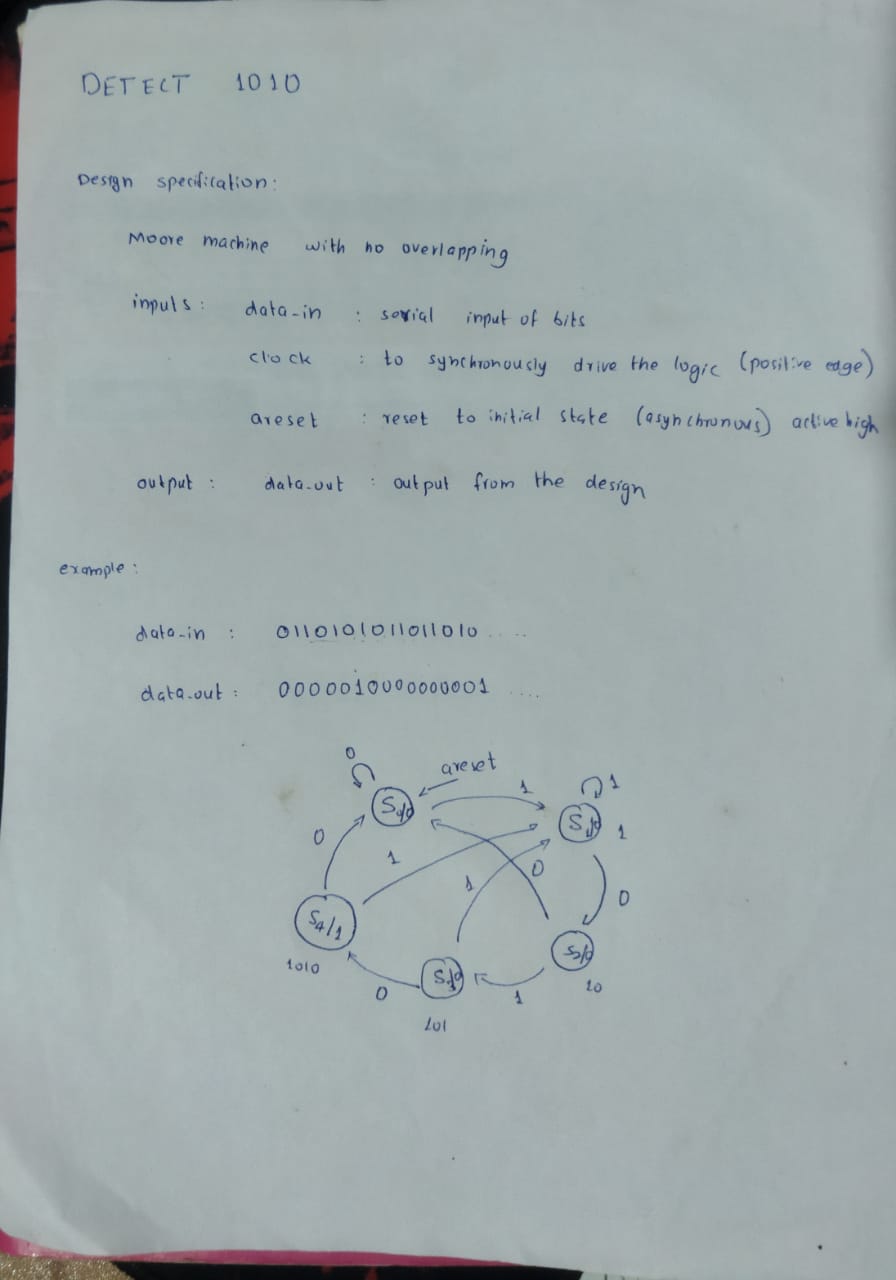 DETECT 1010
Design specification:
Moore machine with no overlapping
inputs: data-in : serial input of bits
clock : to synchronously drive the logic (positive edge)
areset : reset to initial state (asynchronous) active high
output : data-out : output from the design
example :
data-in : 0110101011011010 ....
data-out : 0000010000000001 ....
0
areset
1
1
S0/0
S1/0
1
0
1
0
1
0
S4/1
S2/0
1010
S3/0
10
0
1
101